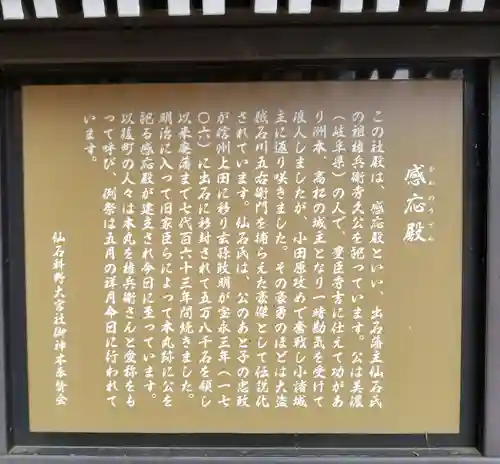 感応殿
かんのうでん
この社殿は、感応殿といい、出石藩主仙石氏
の祖権兵衛秀久公を祀っています。公は美濃
（岐阜県）の人で、豊臣秀吉に仕えて功があ
り洲本、高松の城主となり一時勘気を受けて
浪人しましたが、小田原攻めで奮戦し小諸城
主に返り咲きました。その豪勇のほどは大盗
賊石川五右衛門を捕らえた豪傑として伝説化
されています。仙石氏は、公のあと子の忠政
が信州上田に移り玄孫政明が宝永三年（一七
〇六）に出石に移封されて五万八千石を領し
以来廃藩まで七代百六十三年間続きました。
明治に入って旧家臣らによって本丸跡に公を
祀る感応殿が建立され今日に至っています。
以後町の人々は本丸を権兵衛さんと愛称をも
って呼び、例祭は五月の祥月今日に行われて
います。
仙石神社御神木奉賛会